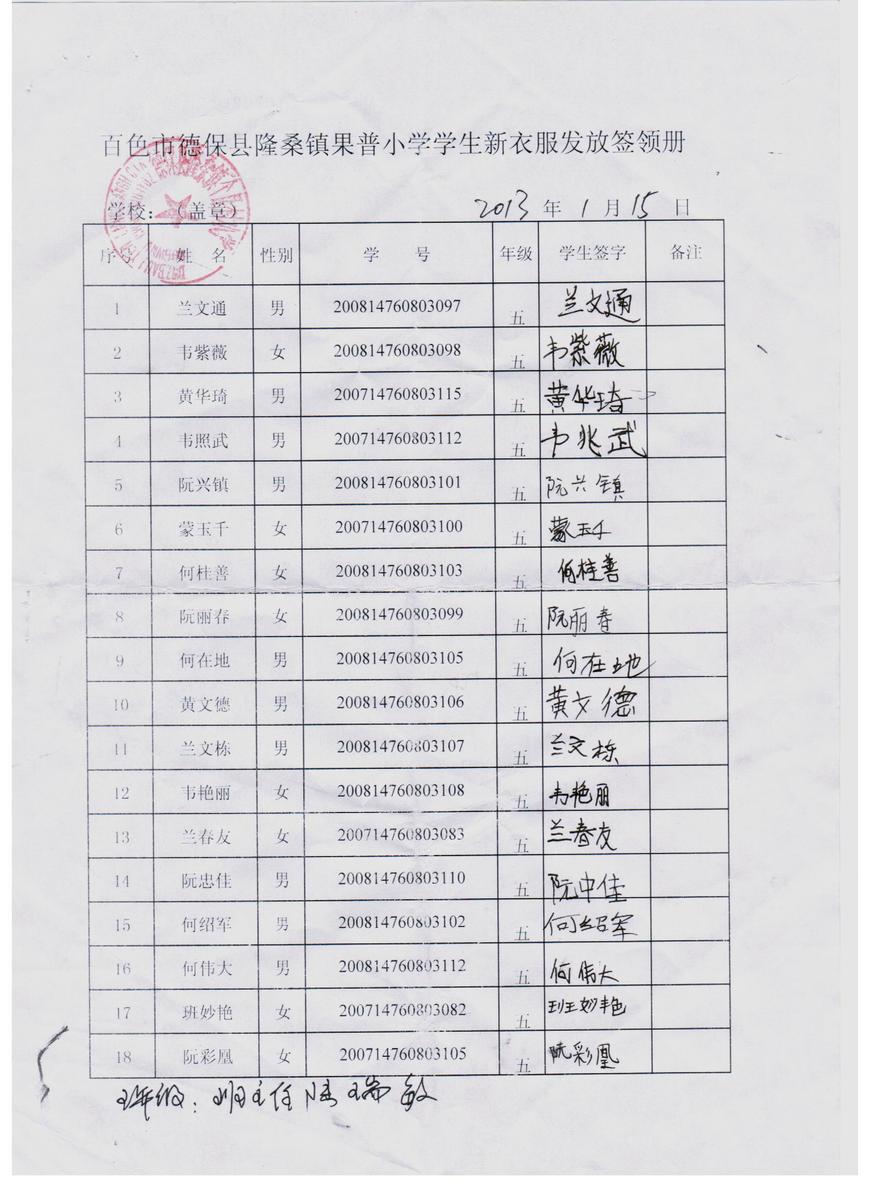 百色市德保县隆桑镇果普小学学生新衣服发放签领册
学校：（盖章） 2013 年 1 月 15 日
序号 姓 名 性别 学 号 年级 学生签字 备注
1 兰文通 男 200814760803097 五 兰文通
2 韦紫薇 女 200814760803098 五 韦紫薇
3 黄华琦 男 200714760803115 五 黄华琦
4 韦照武 男 200714760803112 五 韦兆武
5 阮兴镇 男 200814760803101 五 阮兴镇
6 蒙玉千 女 200714760803100 五 蒙玉千
7 何桂善 女 200814760803103 五 何桂善
8 阮丽春 女 200814760803099 五 阮丽春
9 何在地 男 200814760803105 五 何在地
10 黄文德 男 200814760803106 五 黄文德
11 兰文栋 男 200814760803107 五 兰文栋
12 韦艳丽 女 200814760803108 五 韦艳丽
13 兰春友 女 200714760803083 五 兰春友
14 阮忠佳 男 200814760803110 五 阮中佳
15 何绍军 男 200814760803102 五 何绍军
16 何伟大 男 200814760803112 五 何伟大
17 班妙艳 女 200714760803082 五 班妙艳
18 阮彩凰 女 200714760803105 五 阮彩凰
年级：班主任 陆瑞敏